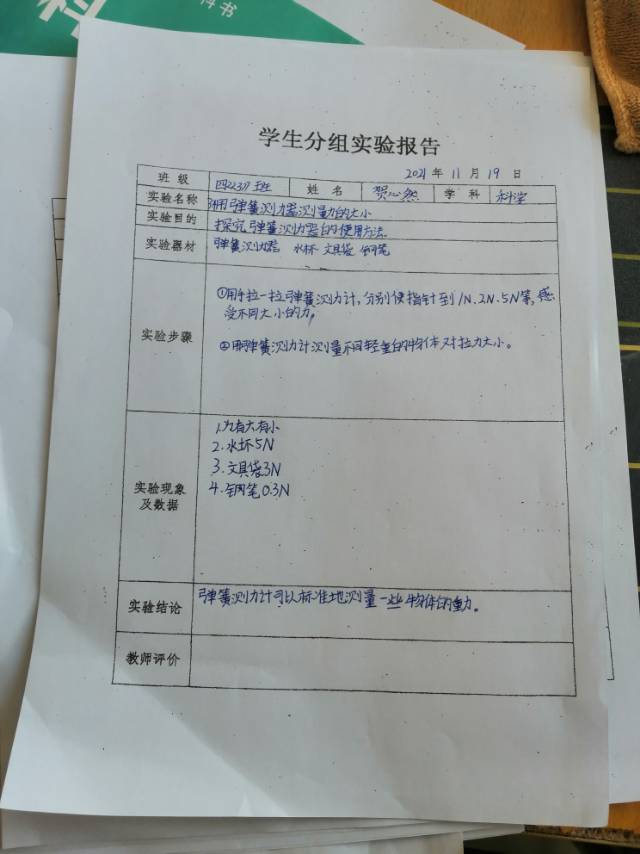 科
科书
学生分组实验报告
2021 年 11 月 19 日
班级 四(23)班 姓名 贺心然 学科 科学
实验名称 用弹簧测力器测量力的大小
实验目的 探究弹簧测力器的使用方法
实验器材 弹簧测力器 水杯 文具袋 钢笔
实验步骤
①用手拉一拉弹簧测力计,分别使指针到1N、2N、5N等,感
受不同大小的力。
②用弹簧测力计测量不同轻重的物体对拉力大小。
实验现象
及数据
1.力有大有小
2.水坏5N
3.文具袋3N
4.钢笔0.3N
实验结论 弹簧测力计可以标准地测量一些物体的重力。
教师评价